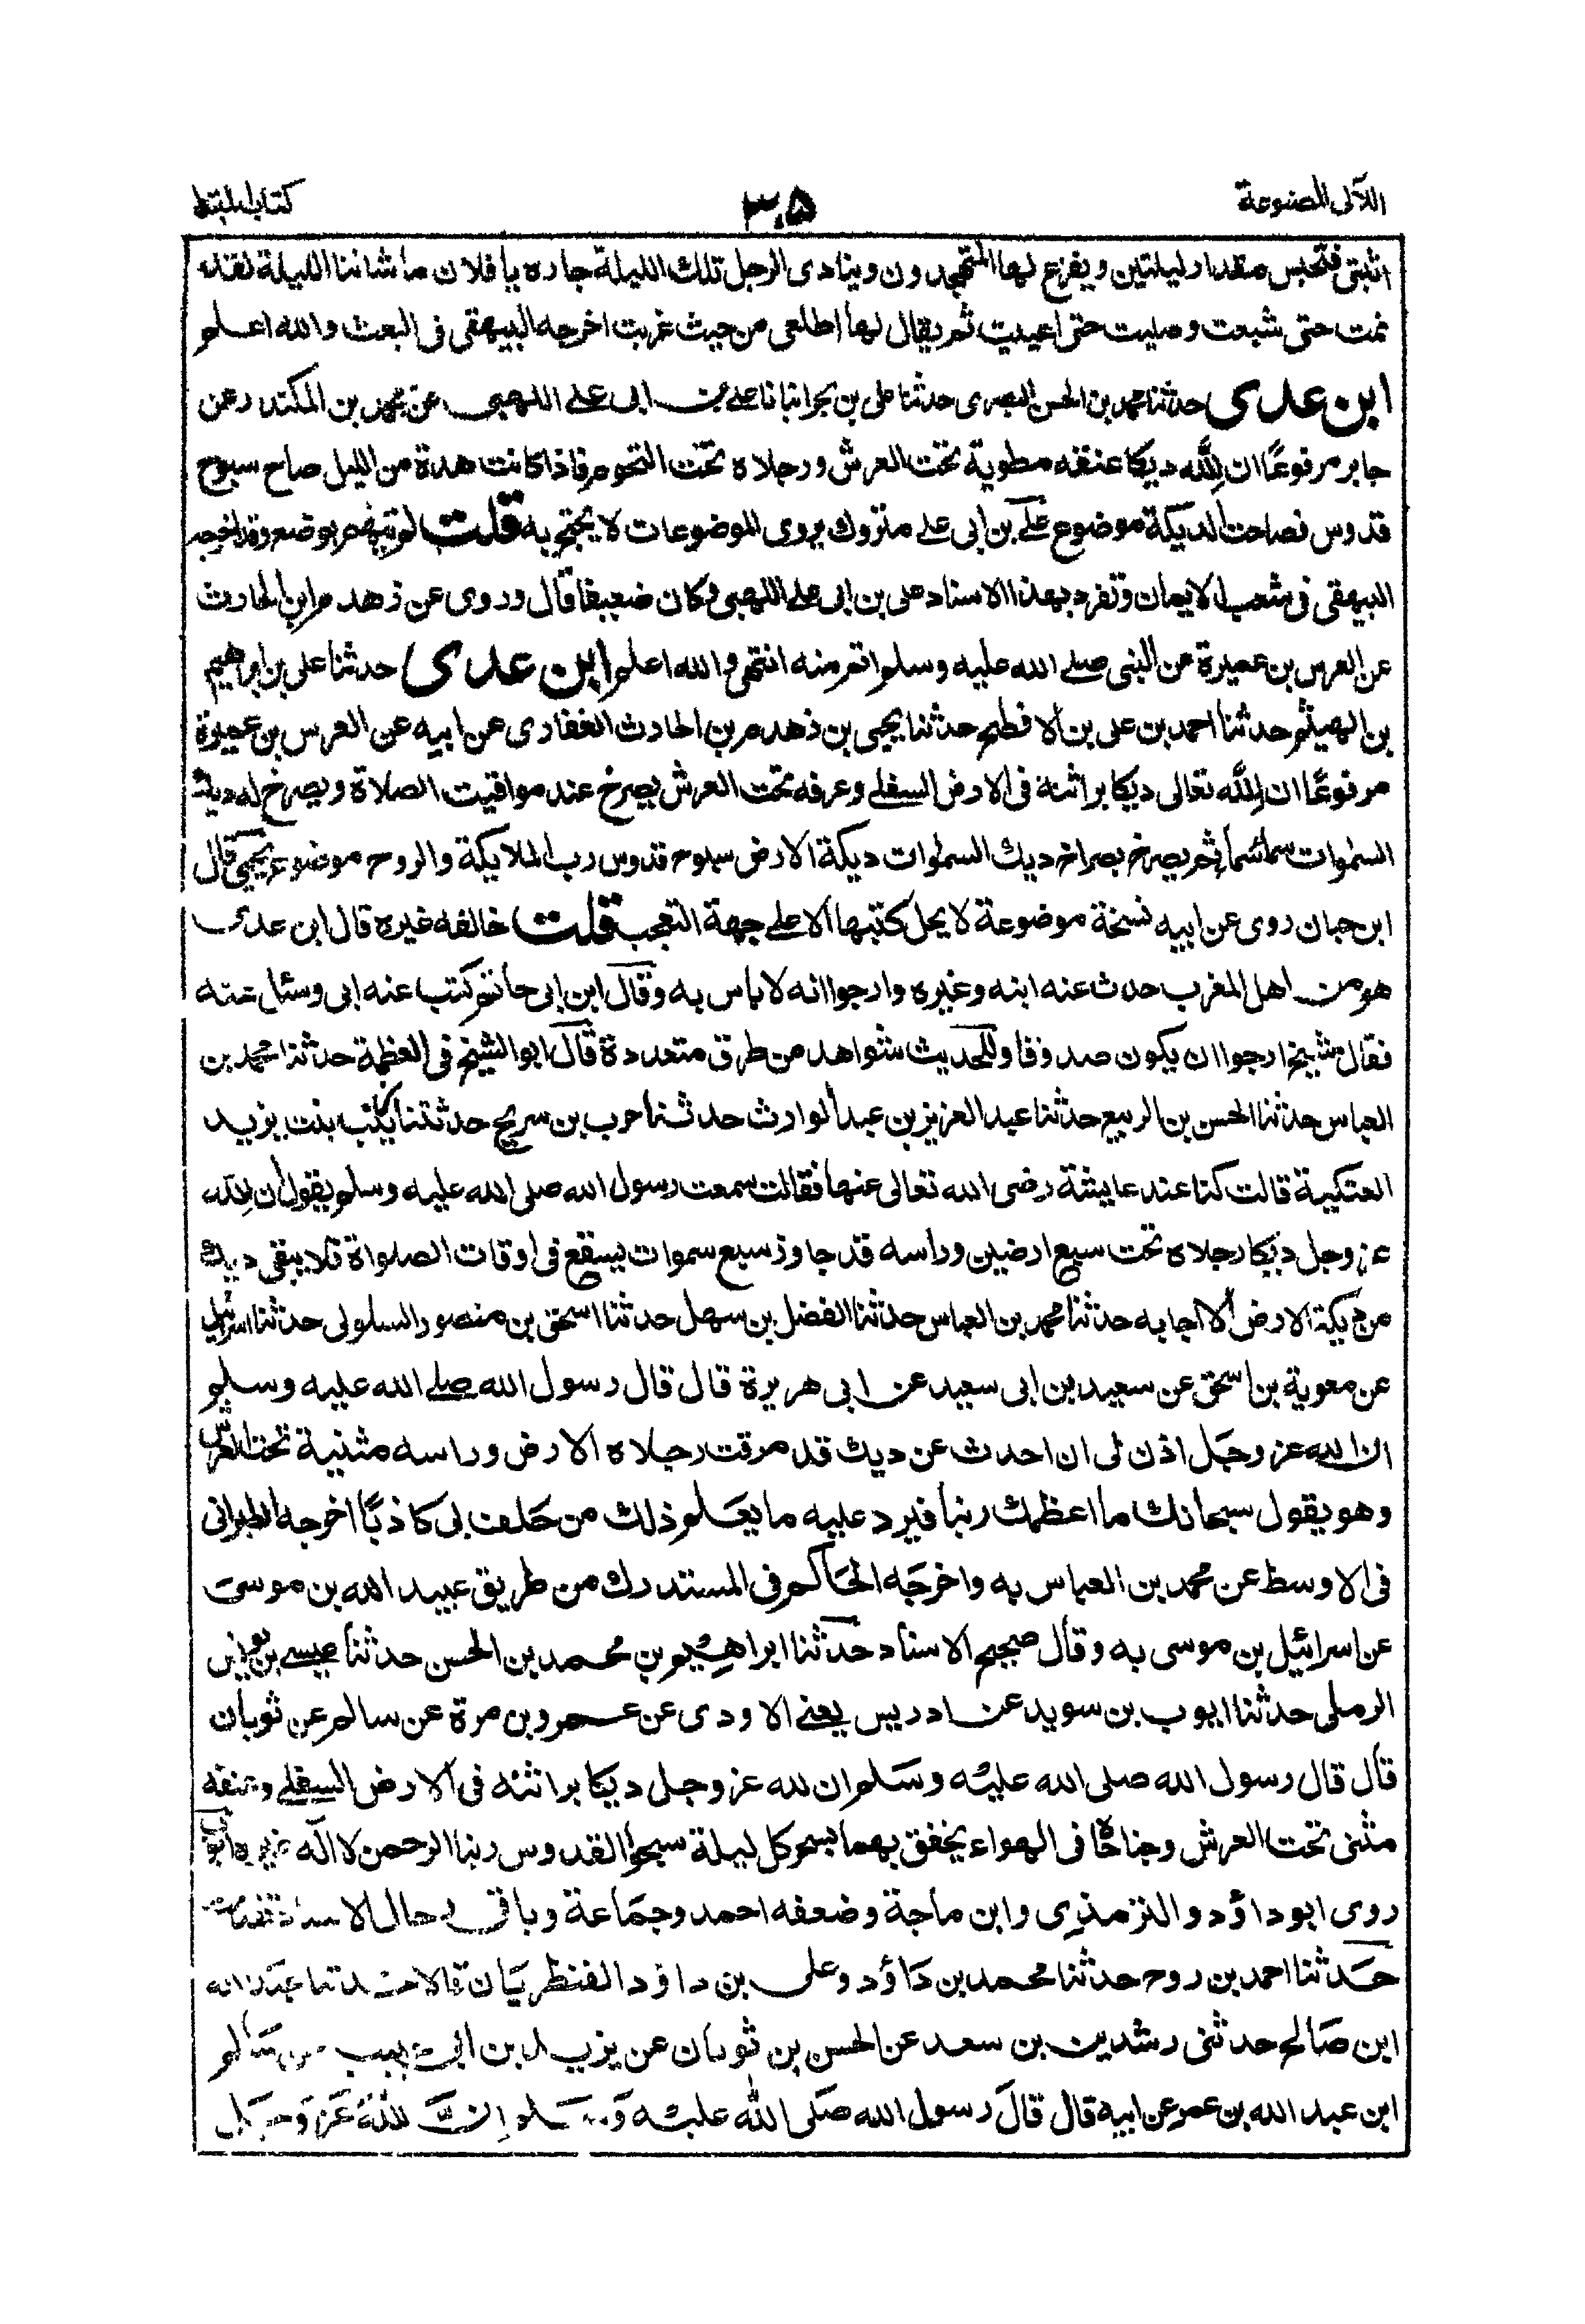 اللآلى المصنوعة
٣٠٥
كتاب المبتدا
اثبتى فتحبس مقدار ليلتين ويفزع لها المتهجدون وينادى الرجل تلك الليلة جاره يا فلان ما شاننا الليلة لقد
نمت حتى شبعت وصليت حتى اعييت ثم يقال لها اطلعى من حيث غربت اخرجه البيهقى فى البعث والله اعلم
ابن عدى حدثنا محمد بن الحسن البصرى حدثنا على بن بحر انبانا على بن ابى على اللهبى عن محمد بن المكندر عن
جابر مرفوعًا ان لِلّٰه ديكا عنقه مطوية تحت العرش ورجلاه تحت التخوم فاذا كانت هدة من الليل صاح سبوح
قدوس فصاحت الديكة موضوع على بن ابى على متروك يروى الموضوعات لا يحتج به قلت لم يتهم بوضع وقد اخرجه
البيهقى فى شعب الايمان وتفرد بهذا الاسناد على بن ابى على اللهبى وكان ضعيفا قال وروى عن زهدم بن الحارث
عن العرس بن عميرة عن النبى صلے الله عليه وسلم اتم منه انتهى والله اعلم ابن عدى حدثنا على بن ابراهيم
بن الهيثم حدثنا احمد بن على بن الافطح حدثنا يحيى بن زهدم بن الحادث الغفارى عن ابيه عن العرس بن عميرة
مرفوعًا ان لِلّٰه تعالى ديكا براثنه فى الارض السفلے وعرفه تحت العرش يصرخ عند مواقيت الصلاة ويصرخ له ديك
السمٰوات سماء سماء ثم يصرخ بصراخ ديك السمٰوات ديكة الارض سبوح قدوس رب الملايكة والروح موضوع يحيى قال
ابن حبان روى عن ابيه نسخة موضوعة لا يحل كتبها الا علے جهة التعجب قلت خالفه غيره قال ابن عدى
هو من اهل المغرب حدث عنه ابنه وغيره وارجوا انه لا باس به وقال ابن ابى حاتم كتب عنه ابى وسئل عنه
فقال شيخ ارجوا ان يكون صدوقا وللحديث شواهد من طرق متعددة قال ابو الشيخ فى العظمة حدثنا محمد بن
العباس حدثنا الحسن بن الربيع حدثنا عبد العزيز بن عبد الوارث حدثنا حرب بن سريج حدثتنا بنت يزيد
العتكية قالت كنا عند عايشة رضى الله تعالى عنها فقالت سمعت رسول الله صلى الله عليه وسلم يقول ان لِلّٰه
عز وجل ديكا رجلاه تحت سبع ارضين وراسه قد جاوز سبع سموات يسقع فى اوقات الصلواة فلا يبقى ديك
من ديكة الارض الا اجابه حدثنا محمد بن العباس حدثنا الفضل بن سهل حدثنا اسحٰق بن منصور السلولى حدثنا اسرائيل
عن معوية بن اسحٰق عن سعيد بن ابى سعيد عن ابى هريرة قال قال رسول الله صلے الله عليه وسلم
ان الله عز وجل اذن لى ان احدث عن ديك قد مرقت رجلاه الارض وراسه مثنية تحت العرش
وهو يقول سبحانك ما اعظمك ربنا فيرد عليه ما يعلم ذلك من حلف بى كاذبًا اخرجه الطبرانى
فى الاوسط عن محمد بن العباس به واخرجه الحاكم فى المستدرك من طريق عبيد الله بن موسىٰ
عن اسرائيل بن موسى به وقال صحيح الاسناد حدثنا ابراهيم بن محمد بن الحسن حدثنا عيسے بن يونس
الرملى حدثنا ايوب بن سويد عن ادريس يعنے الاودى عن عمرو بن مرة عن سالم عن ثوبان
قال قال رسول الله صلى الله عليه وسلم ان لله عز وجل ديكا براثنه فى الارض السفلے وعنقه
مثنى تحت العرش وجناحاه فى الهواء يخفق بهما بسحر كل ليلة سبحوا القدوس ربنا الرحمن لا اله غيره ايوب
روى ابو داؤد والترمذى وابن ماجة وضعفه احمد وجماعة وباقى رجال الاسناد ثقات
حدثنا احمد بن روح حدثنا محمد بن داؤد وعلى بن داؤد القنطريان قالا حدثنا عبد الله
ابن صالح حدثنى رشدين بن سعد عن الحسن بن ثوبان عن يزيد بن ابى حبيب عن سالم
ابن عبد الله بن عمر عن ابيه قال قال رسول الله صلى الله عليه وسلم ان لله عز وجل